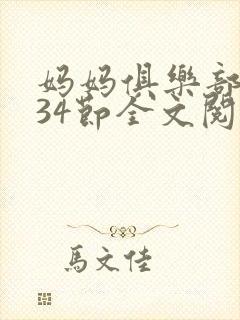 妈妈俱樂部
34節全文閱
馬文佳